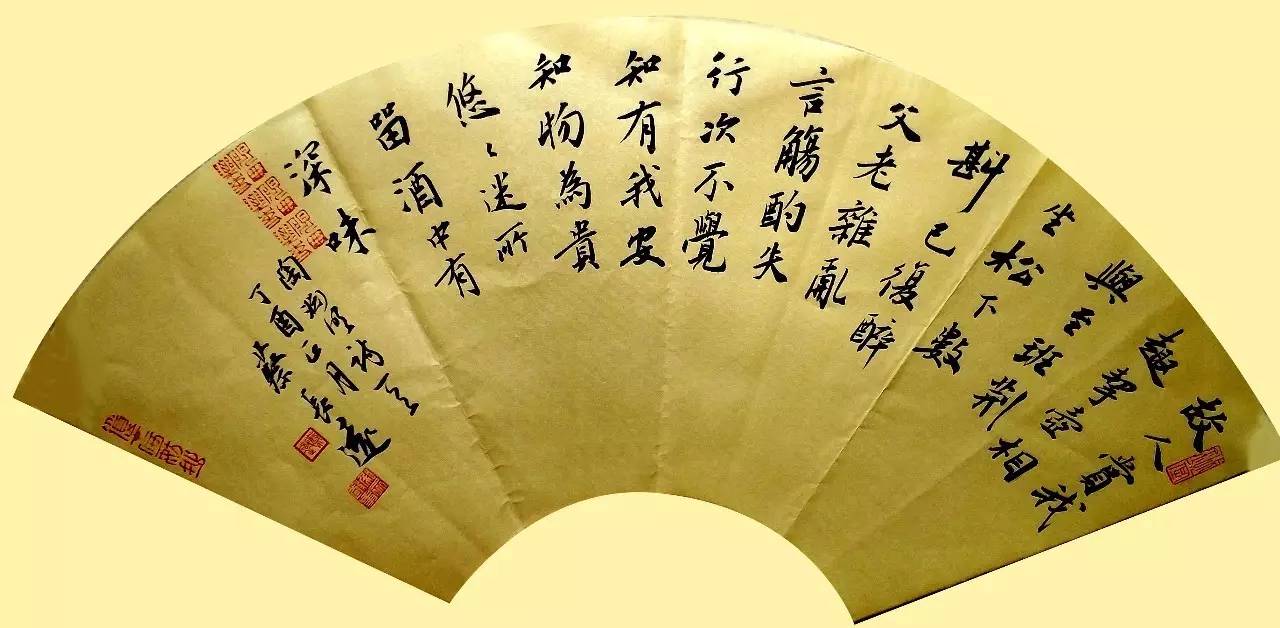 故人賞我
趣挈壺相
與至班荊
坐松下數
斟已復醉
父老雜亂
言觴酌失
行次不覺
知有我安
知物為貴
悠〻迷所
留酒中有
深味
陶淵明詩
丁酉正月
蔡長遠